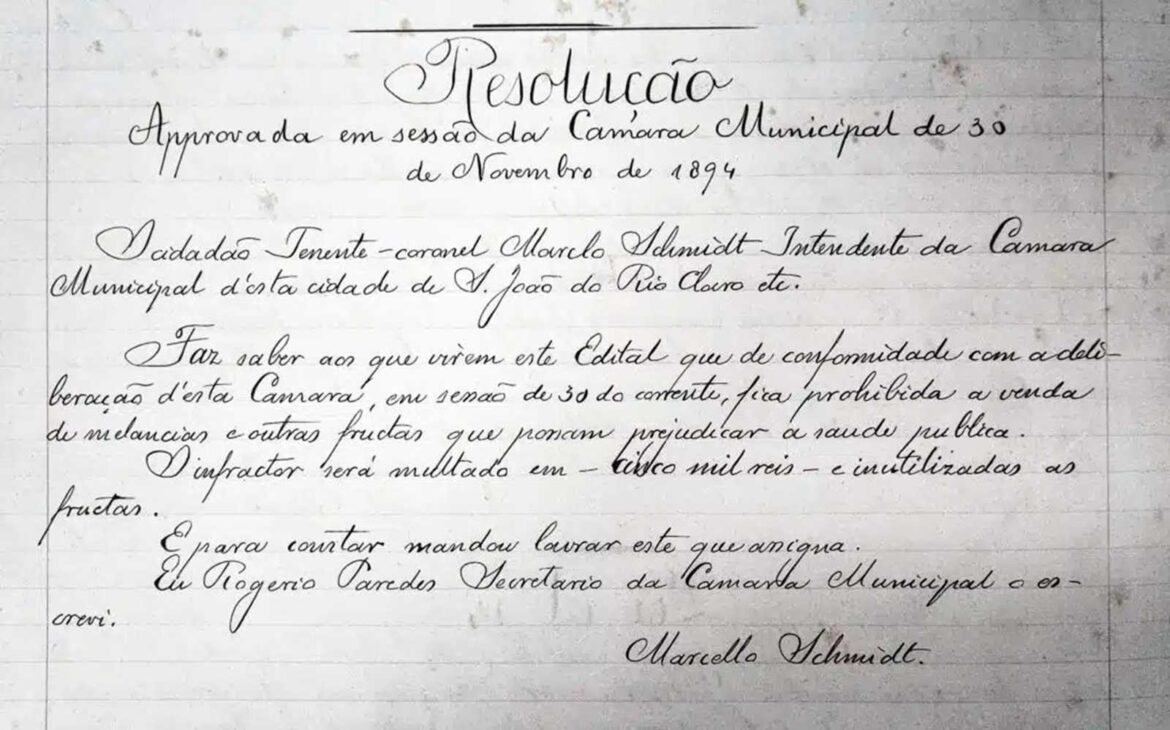 Resolução
Approvada em sessão da Camara Municipal de 30
de Novembro de 1894
O cidadão Tenente-coronel Marclo Schmidt Intendente da Camara
Municipal d'esta cidade de S. João do Rio Claro etc.
Faz saber aos que virem este Edital que de conformidade com a deli-
beração d'esta Camara, em sessão de 30 do corrente, fica prohibida a venda
de melancias e outras fructas que possam prejudicar a saude publica.
O infractor será multado em - cinco mil reis - e inutilizadas as
fructas.
E para constar mandou lavrar este que assigna.
Eu Rogerio Paredes Secretario da Camara Municipal o es-
crevi.
Marcello Schmidt.